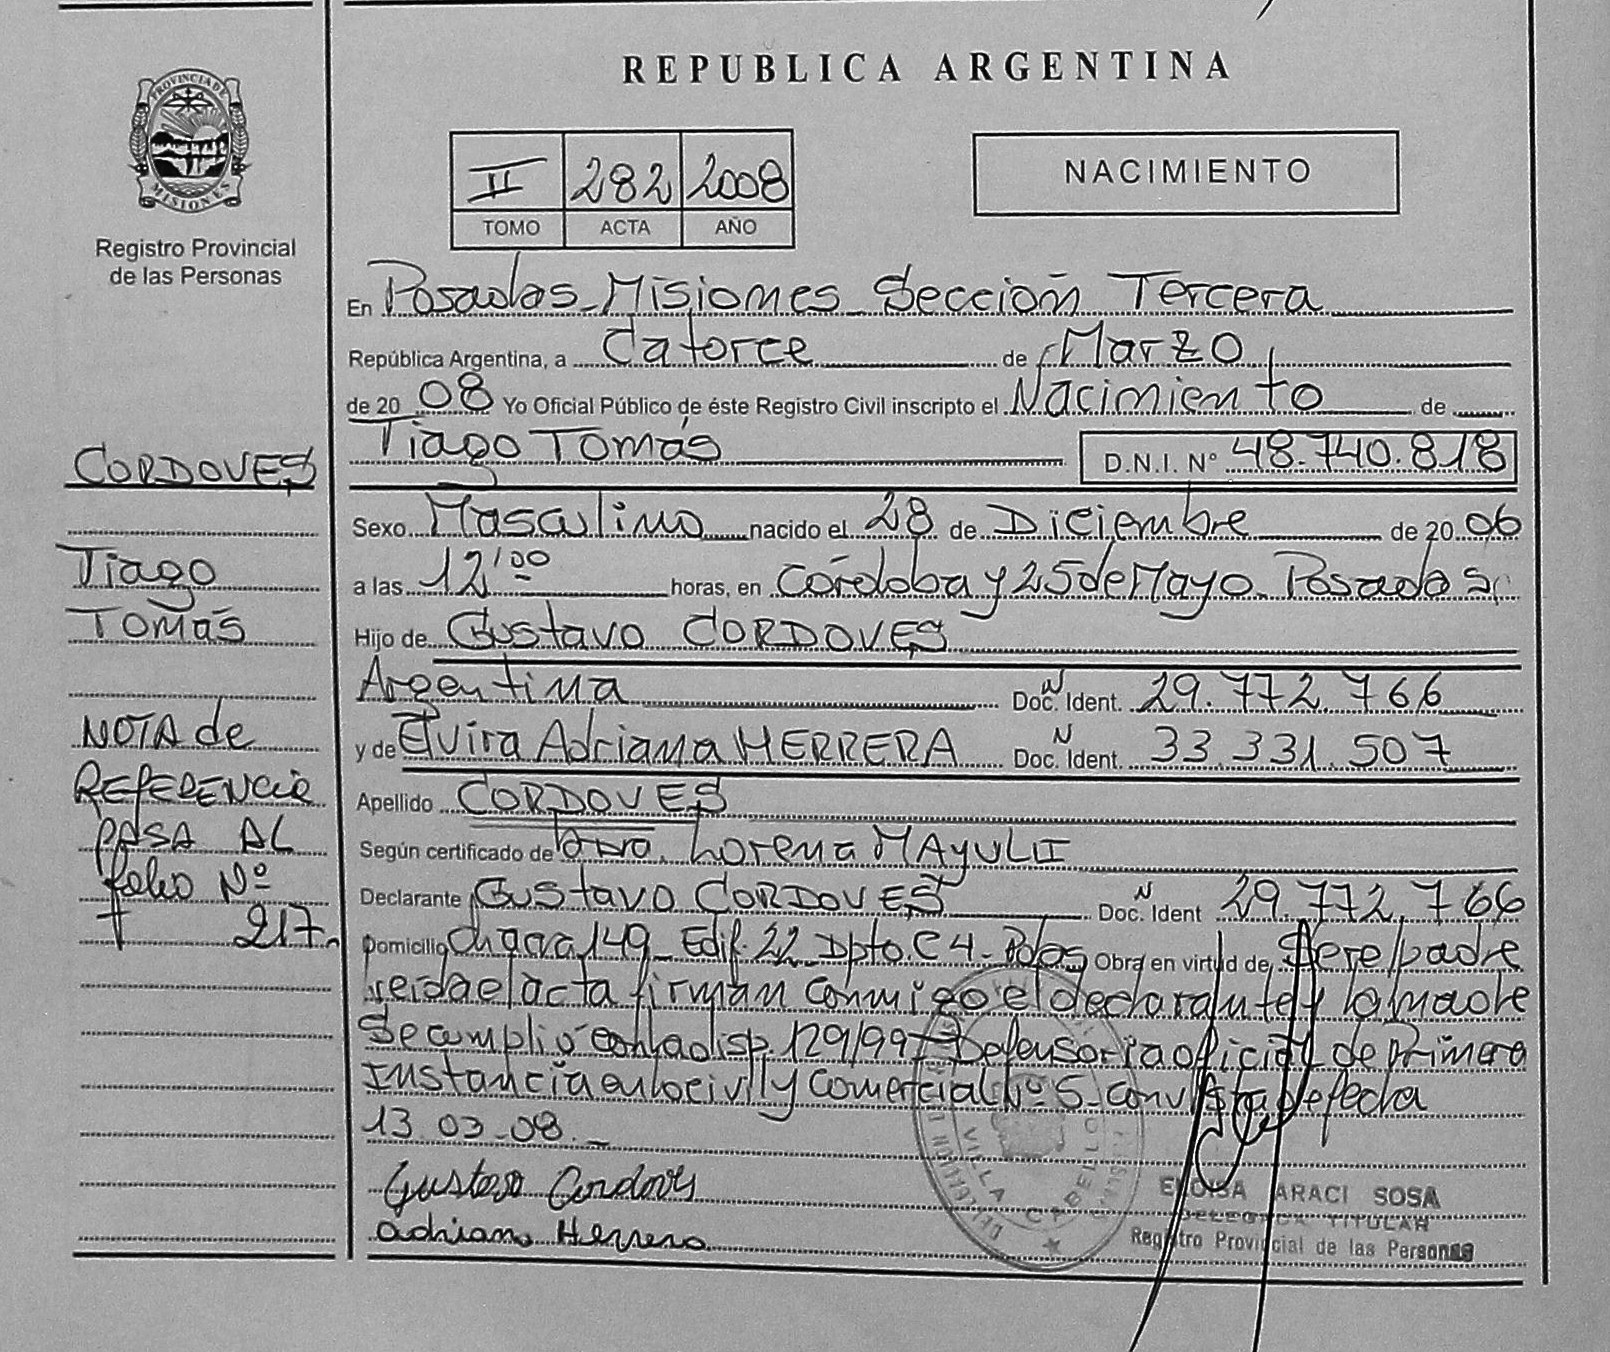 REPUBLICA ARGENTINA
PROVINCIA DE MISIONES
Registro Provincial
de las Personas
II 282 2008
TOMO ACTA AÑO
NACIMIENTO
En Posadas - Misiones - Sección Tercera
República Argentina, a Catorce de Marzo
de 20 08 Yo Oficial Público de éste Registro Civil inscripto el Nacimiento de
Tiago Tomás D.N.I. Nº 48.740.818
CORDOVES
Tiago
Tomás
NOTA de
REFERENCIA
PASA AL
folio Nº
217
Sexo Masculino nacido el 28 de Diciembre de 20 06
a las 12'00 horas, en Córdoba y 25 de Mayo - Posadas
Hijo de Gustavo CORDOVES
Argentina Doc. Ident. 29.772.766
y de Elvira Adriana HERRERA Doc. Ident. 33.331.507
Apellido CORDOVES
Según certificado de Dra. Lorena MAYULII
Declarante Gustavo CORDOVES Doc. Ident 29.772.766
Domicilio Chacra 149 - Edif. 22 - Dpto. C 4 - Pdas Obra en virtud de Ser el padre
leida el acta firman conmigo el declarante y la madre
Se cumplió con la disp. 129/997 Defensoria oficial de Primera
Instancia en lo civil y Comercial Nº 5 - con vista de fecha
13-03-08.-
Gustavo Cordoves
Adriana Herrera
VILLA CABELLO
ELOISA ARACI SOSA
DELEGADA TITULAR
Registro Provincial de las Personas